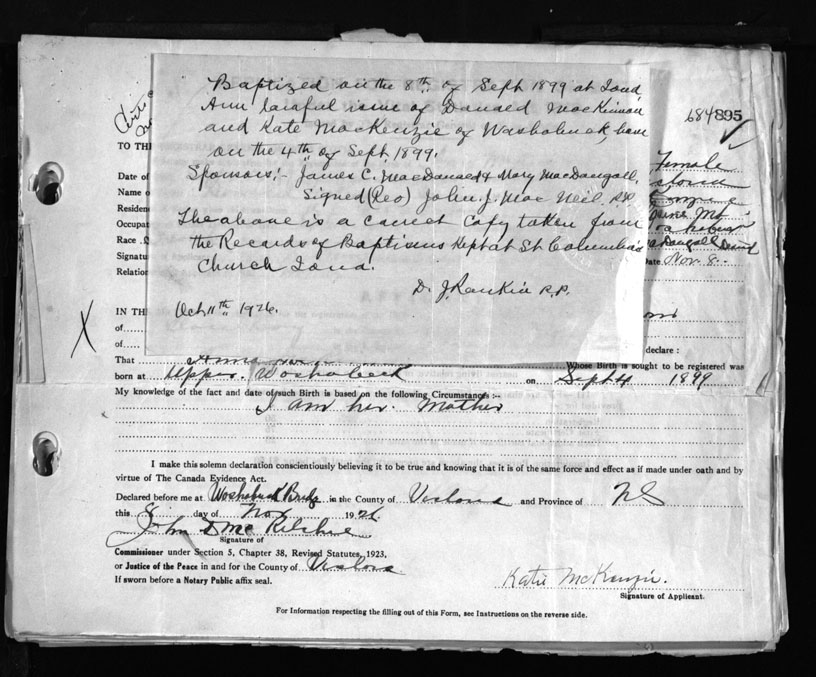 Baptized on the 8th of Sept 1899 at Iona
Ann lawful issue of Donald MacKinnon
and Kate MacKenzie of Washabuck, born
on the 4th of Sept. 1899.
Sponsors:- James C. MacDonald & Mary MacDougall.
Signed (Rev) John J. Mac Neil P.P.
The above is a correct copy taken from
the Records of Baptisms kept at St Columba's
Church Iona.
D. J. Rankin P.P.
Oct 11th 1926.
684895
TO TH
Date of
Name o
Residen
Occupat
Race
Signatu
Relation
Female
Dougall
Date Nov. 8
IN TH
of
of
declare :
That Anna
Whose Birth is sought to be registered was
born at Upper Washabuck on Sept 4 1899
My knowledge of the fact and date of such Birth is based on the following Circumstances :-
I am her Mother
I make this solemn declaration conscientiously believing it to be true and knowing that it is of the same force and effect as if made under oath and by
virtue of The Canada Evidence Act.
Declared before me at Washabuck Bridge in the County of Victoria and Province of NS
this 8 day of Nov 1926
John
Signature of
Commissioner under Section 5, Chapter 38, Revised Statutes, 1923,
or Justice of the Peace in and for the County of Victoria
If sworn before a Notary Public affix seal.
Katie McKenzie
Signature of Applicant.
For Information respecting the filling out of this Form, see Instructions on the reverse side.